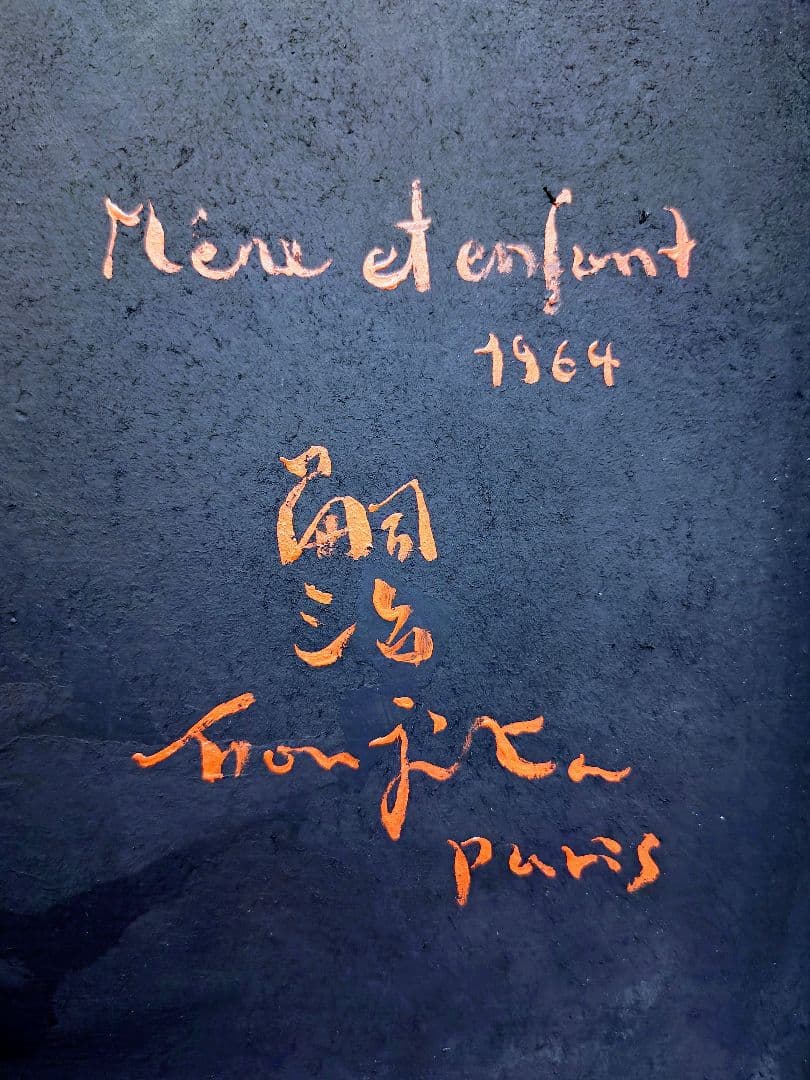 Mère et enfant
1964
嗣
治
Foujita
Paris